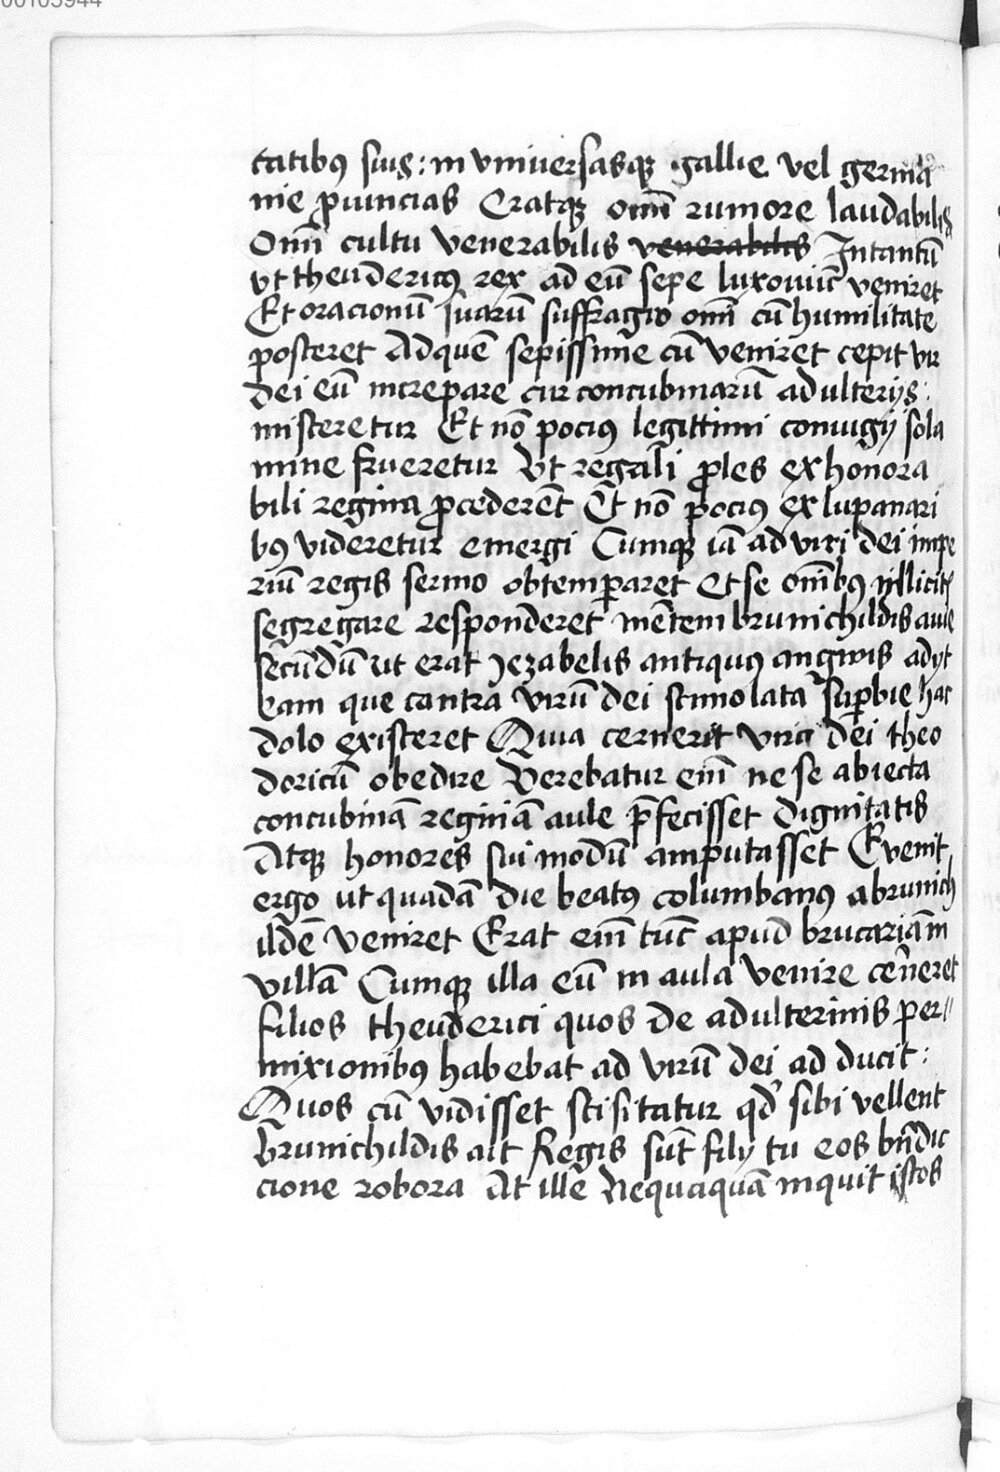 00105944
tatibꝰ suis : in vniuersasqꝫ gallie vel germa
nie ꝓuincias Eratqꝫ om̄i rumore laudabilis
Om̄i cultu venerabilis venerabilis Intantū
vt theudericꝰ rex ad eū sepe luxouiū veniret
Et oracionū suarū suffragio om̄i cū humilitate
posteret Ad quē sepissime cū veniret cepit vir
dei eū increpare cur concubinarū adulterijs :
misteretur Et nō pociꝰ legittimi coniugij sola
mine frueretur Vt regali ꝓles ex honora
bili regina ꝓcederēt Et nō pociꝰ ex lupanari
bꝰ videretur emergi Cumqꝫ iā ad viri dei impe
riū regis sermo obtemꝑaret Et se om̄ibꝰ illicitꝭ
segregare responderet mētem brunichildis auie
secūdū ut erat Jezabelis antiquꝰ angwis adyt
Eam que contra virū dei stimolata suꝑbie hac
dolo existeret Quia cerneret viro dei theo
doricū obedire Verebatur em̄ ne se abiecta
concubinā reginā aule p̄fecisset dignitatis
Atqꝫ honores sui modū amputasset Evenit
ergo ut quadā die beatꝰ columbanꝰ a brunich
ildē veniret Erat em̄ tūc apud brucariā in
villā Cumqꝫ illa eū in aula venire cerneret
filios theuderici quos de adulterinis per//
mixionibꝰ habebat ad virū dei ad ducit :
Quos cū vidisset scisitatur qd̓ sibi vellent
Brunichildis ait Regis sūt filij tu eos bn̄dic
cione robora At ille Nequaquā inquit istos